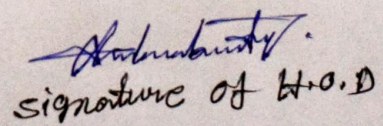 signature of H.O.D